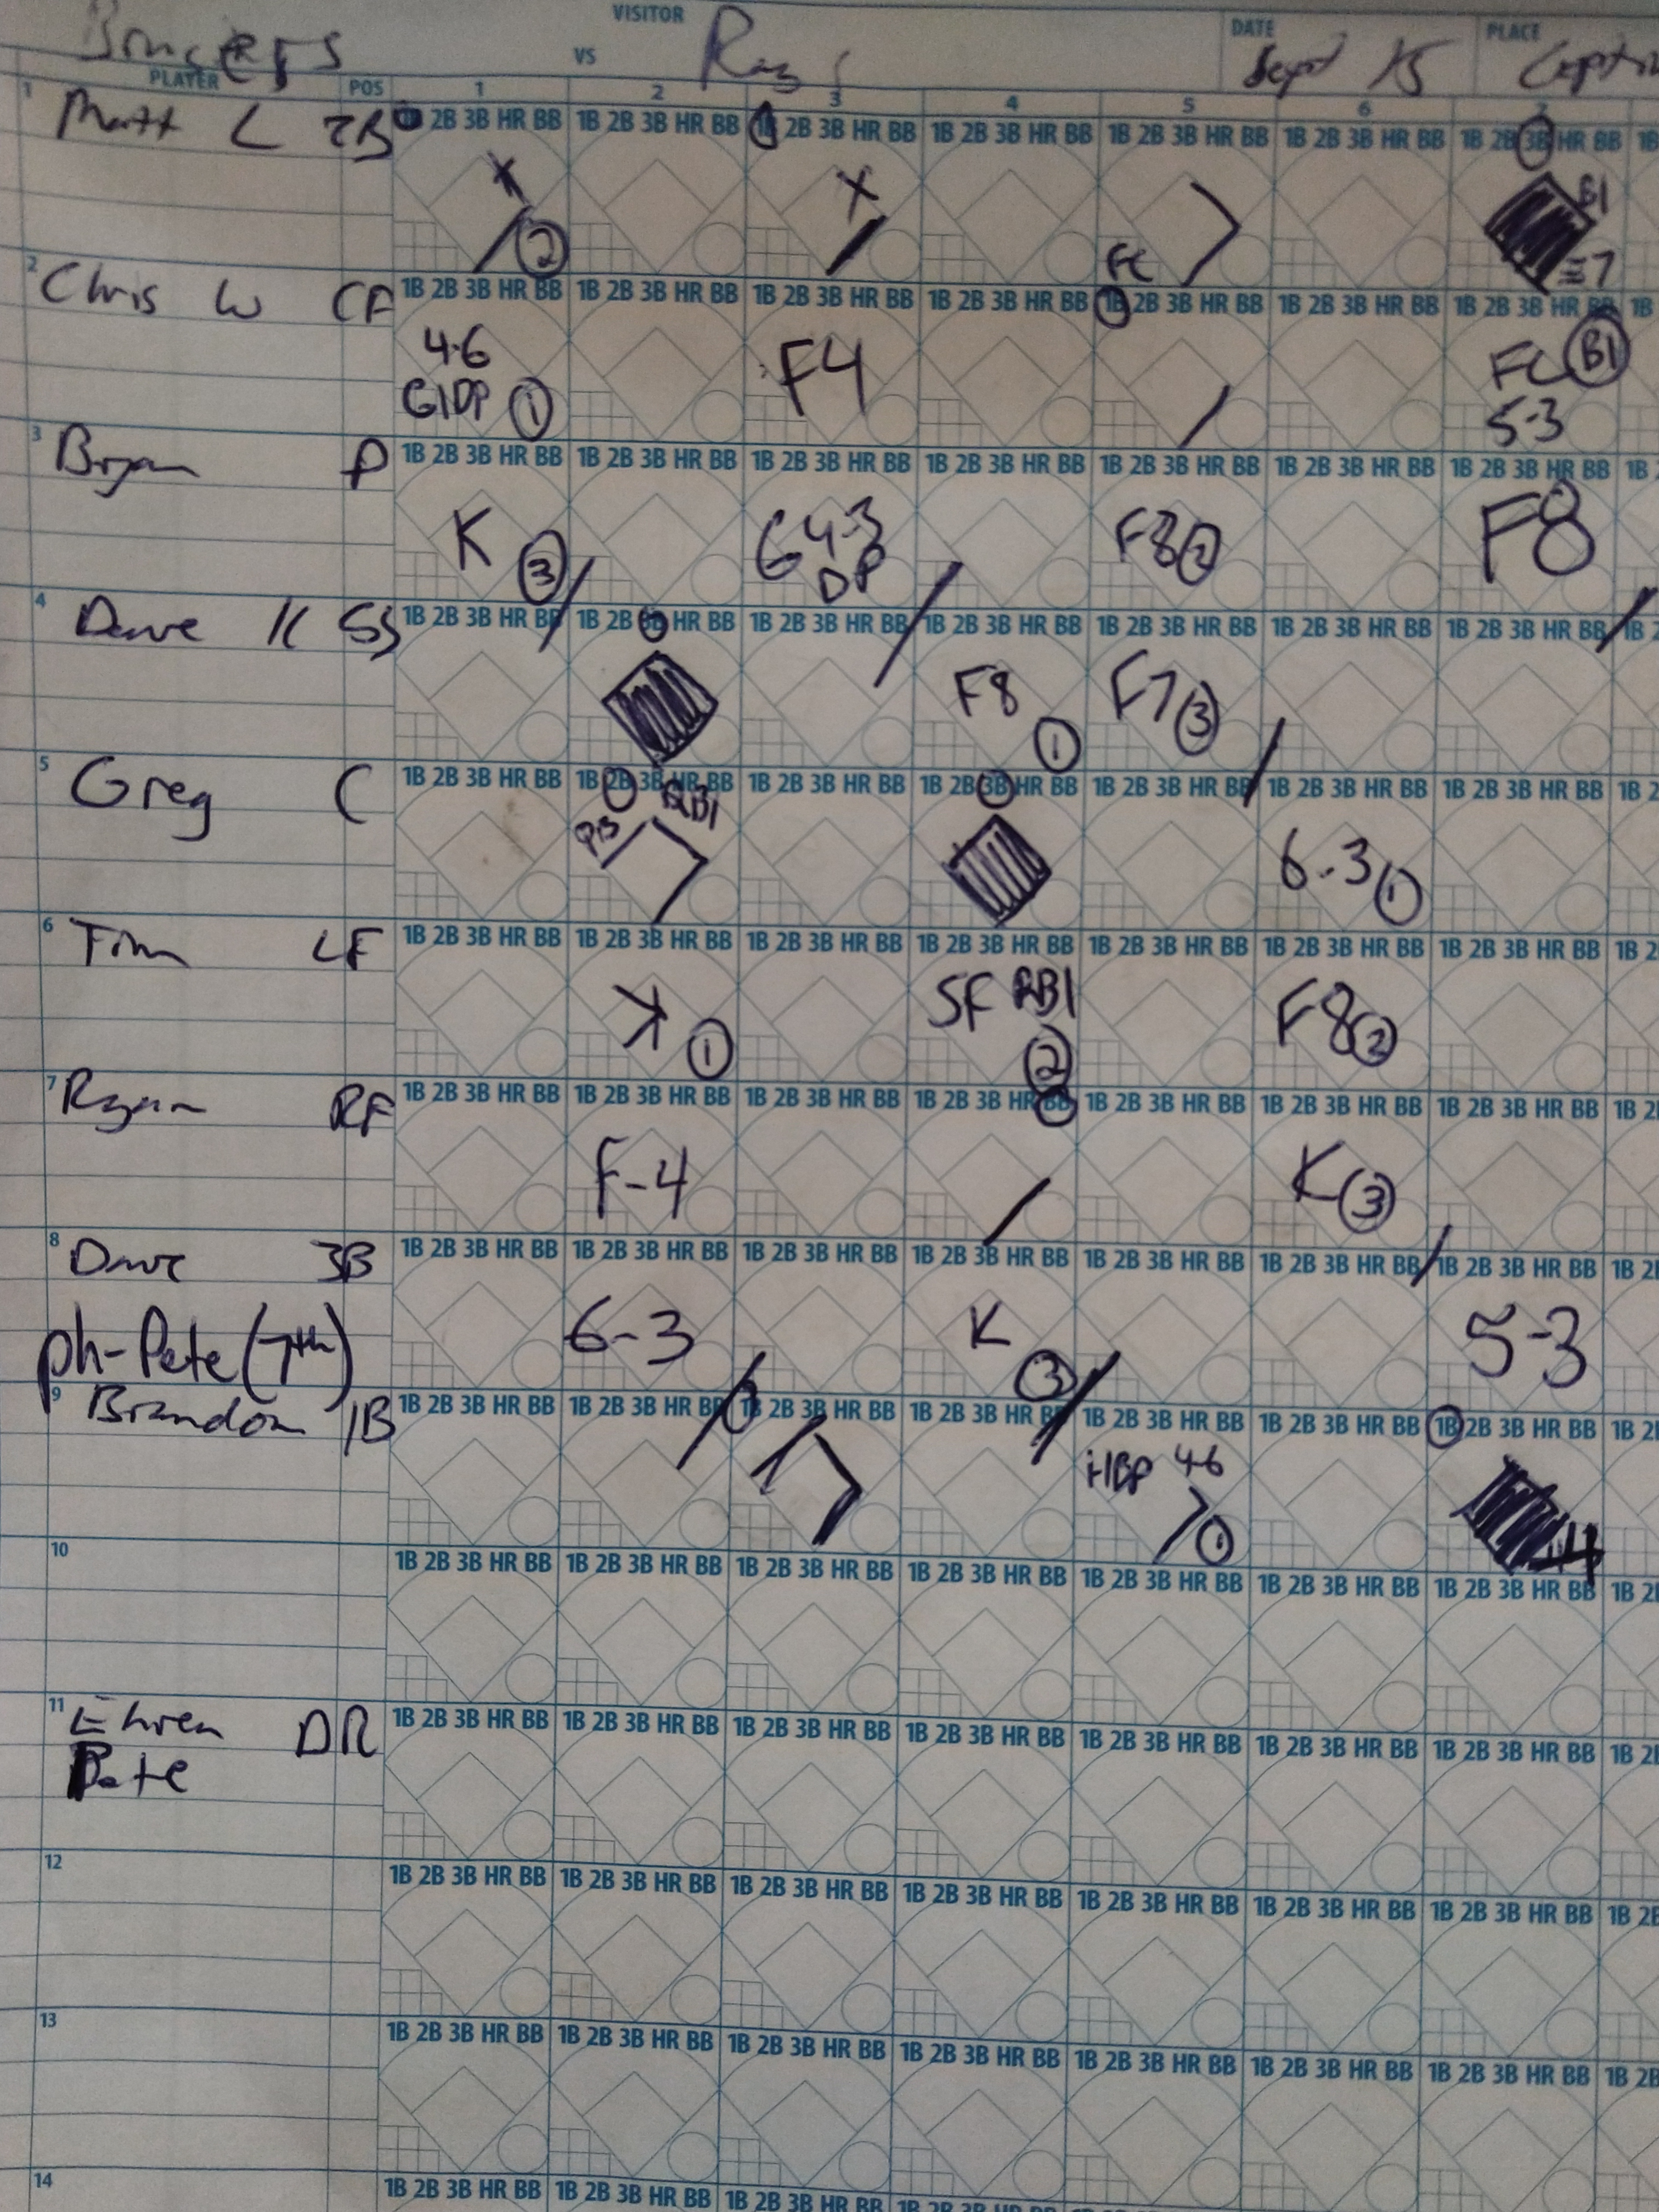 VISITOR DATE PLACE
VS Sept 15
PLAYER POS 1 2 3 4 5 6 7
1 Matt L 2B 1B 2B 3B HR BB 1B 2B 3B HR BB 1B 2B 3B HR BB 1B 2B 3B HR BB 1B 2B 3B HR BB 1B 2B 3B HR BB 1B 2B 3B HR BB 1B
X 2 X FC BI E7
2 Chris W CF 1B 2B 3B HR BB 1B 2B 3B HR BB 1B 2B 3B HR BB 1B 2B 3B HR BB 1B 2B 3B HR BB 1B 2B 3B HR BB 1B 2B 3B HR BB 1B
4-6 F4 FC BI
GIDP 1 5-3
3 Bryan P 1B 2B 3B HR BB 1B 2B 3B HR BB 1B 2B 3B HR BB 1B 2B 3B HR BB 1B 2B 3B HR BB 1B 2B 3B HR BB 1B 2B 3B HR BB 1B
K 3 G 4-3 F8 2 F8
DP
4 Dave K SS 1B 2B 3B HR BB 1B 2B 3B HR BB 1B 2B 3B HR BB 1B 2B 3B HR BB 1B 2B 3B HR BB 1B 2B 3B HR BB 1B 2B 3B HR BB 1B 2
F8 1 F7 3
5 Greg C 1B 2B 3B HR BB 1B 2B 3B HR BB 1B 2B 3B HR BB 1B 2B 3B HR BB 1B 2B 3B HR BB 1B 2B 3B HR BB 1B 2B 3B HR BB 1B 2
PB RBI 6-3 1
6 Tim LF 1B 2B 3B HR BB 1B 2B 3B HR BB 1B 2B 3B HR BB 1B 2B 3B HR BB 1B 2B 3B HR BB 1B 2B 3B HR BB 1B 2B 3B HR BB 1B 2
K 1 SF RBI 2 F8 2
7 Ryan RF 1B 2B 3B HR BB 1B 2B 3B HR BB 1B 2B 3B HR BB 1B 2B 3B HR BB 1B 2B 3B HR BB 1B 2B 3B HR BB 1B 2B 3B HR BB 1B 2
F-4 K 3
8 Dave 3B 1B 2B 3B HR BB 1B 2B 3B HR BB 1B 2B 3B HR BB 1B 2B 3B HR BB 1B 2B 3B HR BB 1B 2B 3B HR BB 1B 2B 3B HR BB 1B 2
ph-Pete (7th) 6-3 K 3 5-3
9 Brandon 1B 1B 2B 3B HR BB 1B 2B 3B HR BB 1B 2B 3B HR BB 1B 2B 3B HR BB 1B 2B 3B HR BB 1B 2B 3B HR BB 1B 2B 3B HR BB 1B 2
HBP 4-6 1 4
10 1B 2B 3B HR BB 1B 2B 3B HR BB 1B 2B 3B HR BB 1B 2B 3B HR BB 1B 2B 3B HR BB 1B 2B 3B HR BB 1B 2B 3B HR BB 1B 2
11 Ehren DR 1B 2B 3B HR BB 1B 2B 3B HR BB 1B 2B 3B HR BB 1B 2B 3B HR BB 1B 2B 3B HR BB 1B 2B 3B HR BB 1B 2B 3B HR BB 1B 2
Pete
12 1B 2B 3B HR BB 1B 2B 3B HR BB 1B 2B 3B HR BB 1B 2B 3B HR BB 1B 2B 3B HR BB 1B 2B 3B HR BB 1B 2B 3B HR BB 1B 2B
13 1B 2B 3B HR BB 1B 2B 3B HR BB 1B 2B 3B HR BB 1B 2B 3B HR BB 1B 2B 3B HR BB 1B 2B 3B HR BB 1B 2B 3B HR BB 1B 2B
14 1B 2B 3B HR BB 1B 2B 3B HR BB 1B 2B 3B HR BB 1B 2B 3B HR BB